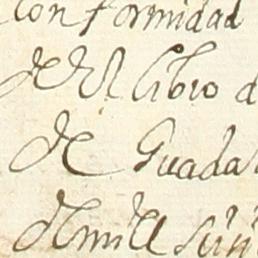 conformidad
del libro d
de Guada
de mill